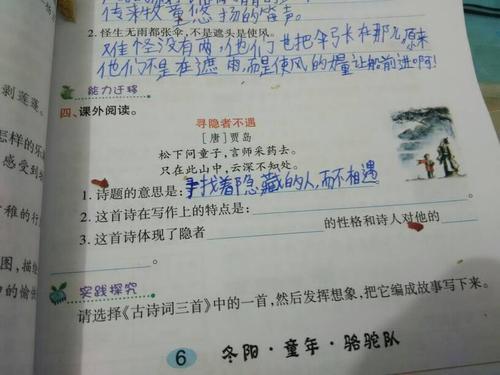 传来牧童悠扬的笛声。
2. 怪生无雨都张伞,不是遮头是使风。
难怪没有雨,他们也把伞张在那儿,原来
他们不是在遮雨,而是使风的力量让船前进啊!
剥莲蓬。
能力迁移
四、课外阅读。
怎样的乐
感受到
寻隐者不遇
[唐]贾岛
松下问童子,言师采药去。
只在此山中,云深不知处。
1. 诗题的意思是:寻找着隐藏的人,而不相遇
稚的行
2. 这首诗在写作上的特点是:
3. 这首诗体现了隐者 的性格和诗人对他的
。
图,描
的愉
实践探究
请选择《古诗词三首》中的一首,然后发挥想象,把它编成故事写下来。
6 冬阳·童年·骆驼队